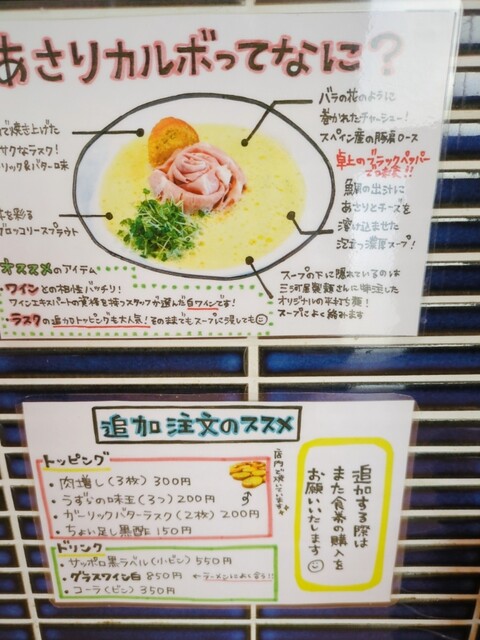 あさりカルボってなに？
で焼き上げた
サクなラスク！
リック&バター味
を彩る
ブロッコリースプラウト
バラの花のように
巻かれたチャーシュー！
スペイン産の豚肩ロース
卓上のブラックペッパー
で味変！！
鯛の出汁に
あさりとチーズを
溶け込ませた
泡立つ濃厚スープ！
スープの下に隠れているのは
三河屋製麺さんに特注した
オリジナルの平打ち麺！
スープによく絡みます
オススメのアイテム
・ワインとの相性バッチリ！
ワインエキスパートの資格を持つスタッフが選んだ白ワインです！
・ラスクの追加トッピングも大人気！そのままでもスープに浸しても
追加注文のススメ
トッピング
・肉増し(3枚) 300円
・うずらの味玉(3つ) 200円
・ガーリックバターラスク(2枚) 200円
・ちょい足し黒酢 150円
店内で焼いています
ドリンク
・サッポロ黒ラベル(小ビン) 550円
・グラスワイン白 850円 ←ラーメンに合う！！
・コーラ(ビン) 350円
追加する際は
また食券の購入を
お願いいたします